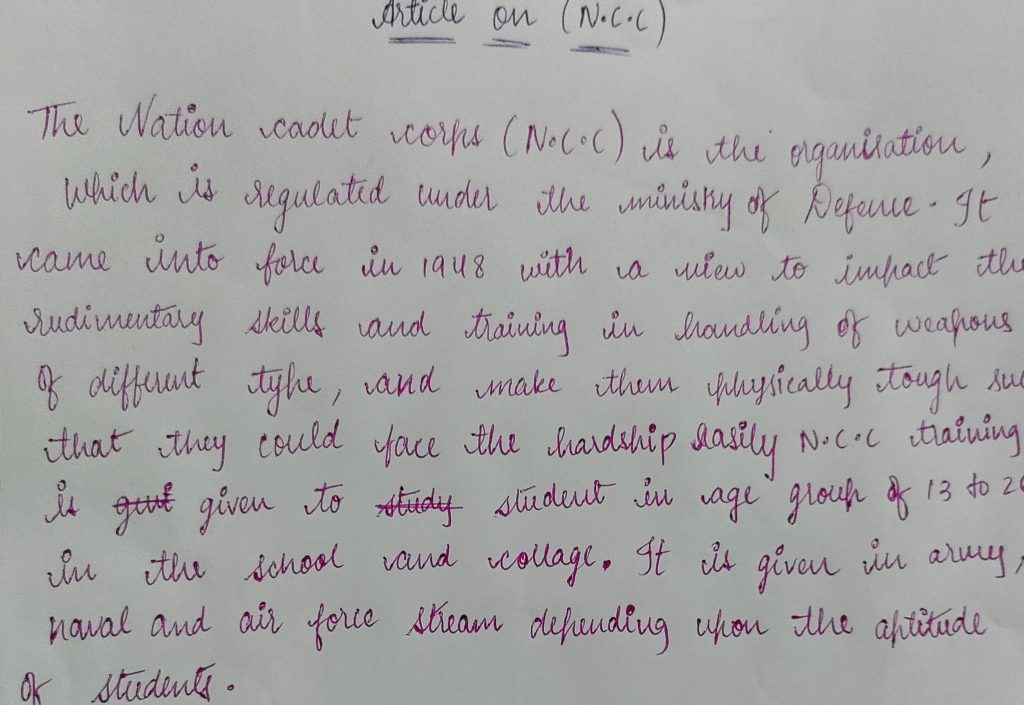 Article on (N.C.C)
The Nation cadet corps (N.C.C) is the organisation,
which is regulated under the ministry of Defence. It
came into force in 1948 with a view to impact the
rudimentary skills and training in handling of weapons
of different type, and make them physically tough suc
that they could face the hardship easily N.C.C training
is given to student in age group of 13 to 26
in the school and collage. It is given in army,
naval and air force stream depending upon the aptitude
of students.